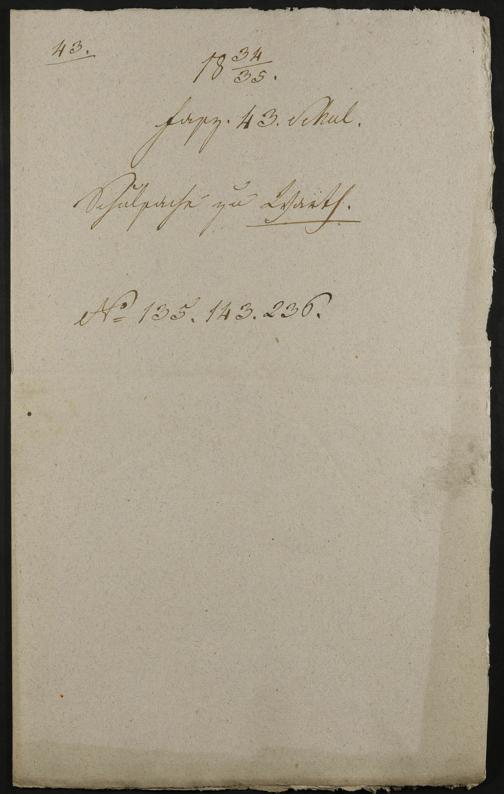 43.
18 34/35.
Fasz. 43. Schul.
Schulsache zu Warth.
No 135. 143. 236.